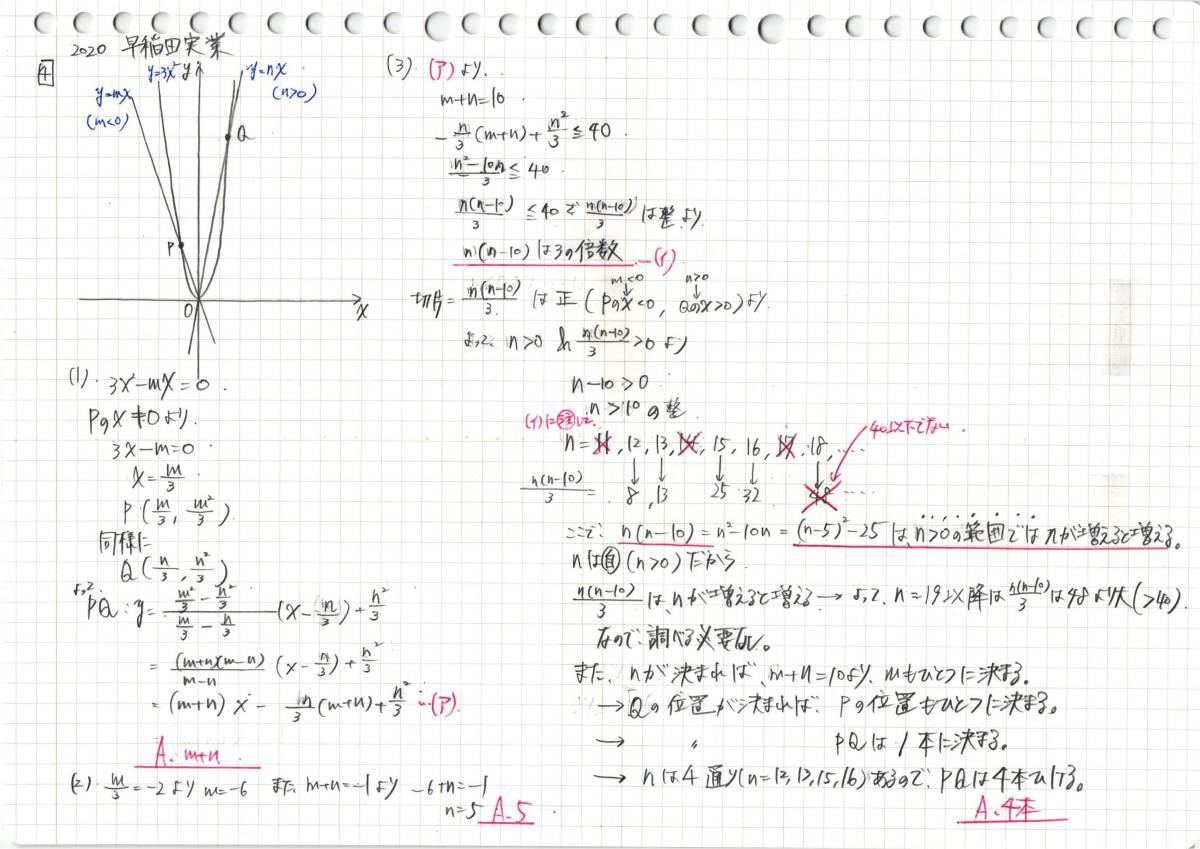 2020 早稲田実業
4
y=mx
(m<0)
y=3x²
y
y=nx
(n>0)
Q
P
O
x
(1). 3x²-mx=0.
Pのx≠0より.
3x-m=0
x=m/3
P(m/3, m²/3).
同様に
Q(n/3, n²/3)
よって
PQ:y=(m²/3-n²/3)/(m/3-n/3)(x-n/3)+n²/3
=(m+n)(m-n)/(m-n)(x-n/3)+n²/3
=(m+n)x-n/3(m+n)+n²/3…(ア).
A. m+n
(2). m/3=-2より m=-6 また m+n=-1より -6+n=-1
n=5 A.5
(3). (ア)より.
m+n=10
-n/3(m+n)+n²/3≦40.
(n²-10n)/3≦40.
n(n-10)/3≦40で n(n-10)/3は整より
n(n-10)は3の倍数 —(イ)
m<0 n>0
↓ ↓
切片=n(n-10)/3は正(Pのx<0, Qのx>0)より
よって n>0 & n(n-10)/3>0より
n-10>0.
n>10の整
(イ)に注して.
40以下でない.
n=11, 12, 13, 14, 15, 16, 17, 18, ……
↓ ↓ ↓ ↓ ↓
n(n-10)/3= 8, 13 25 32 48 ……
ここで n(n-10)=n²-10n=(n-5)²-25は、n>0の範囲ではnが増えると増える。
nは自(n>0)だから
n(n-10)/3は、nが増えると増える→よって、n=19以降はn(n-10)/3は48より大(>40).
なので、調べる必要なし。
また、nが決まれば、m+n=10より、mもひとつに決まる。
→Qの位置が決まれば、Pの位置もひとつに決まる。
→ 〃 PQは1本に決まる。
→ nは4通り(n=12,13,15,16)あるので、PQは4本ひける。
A.4本